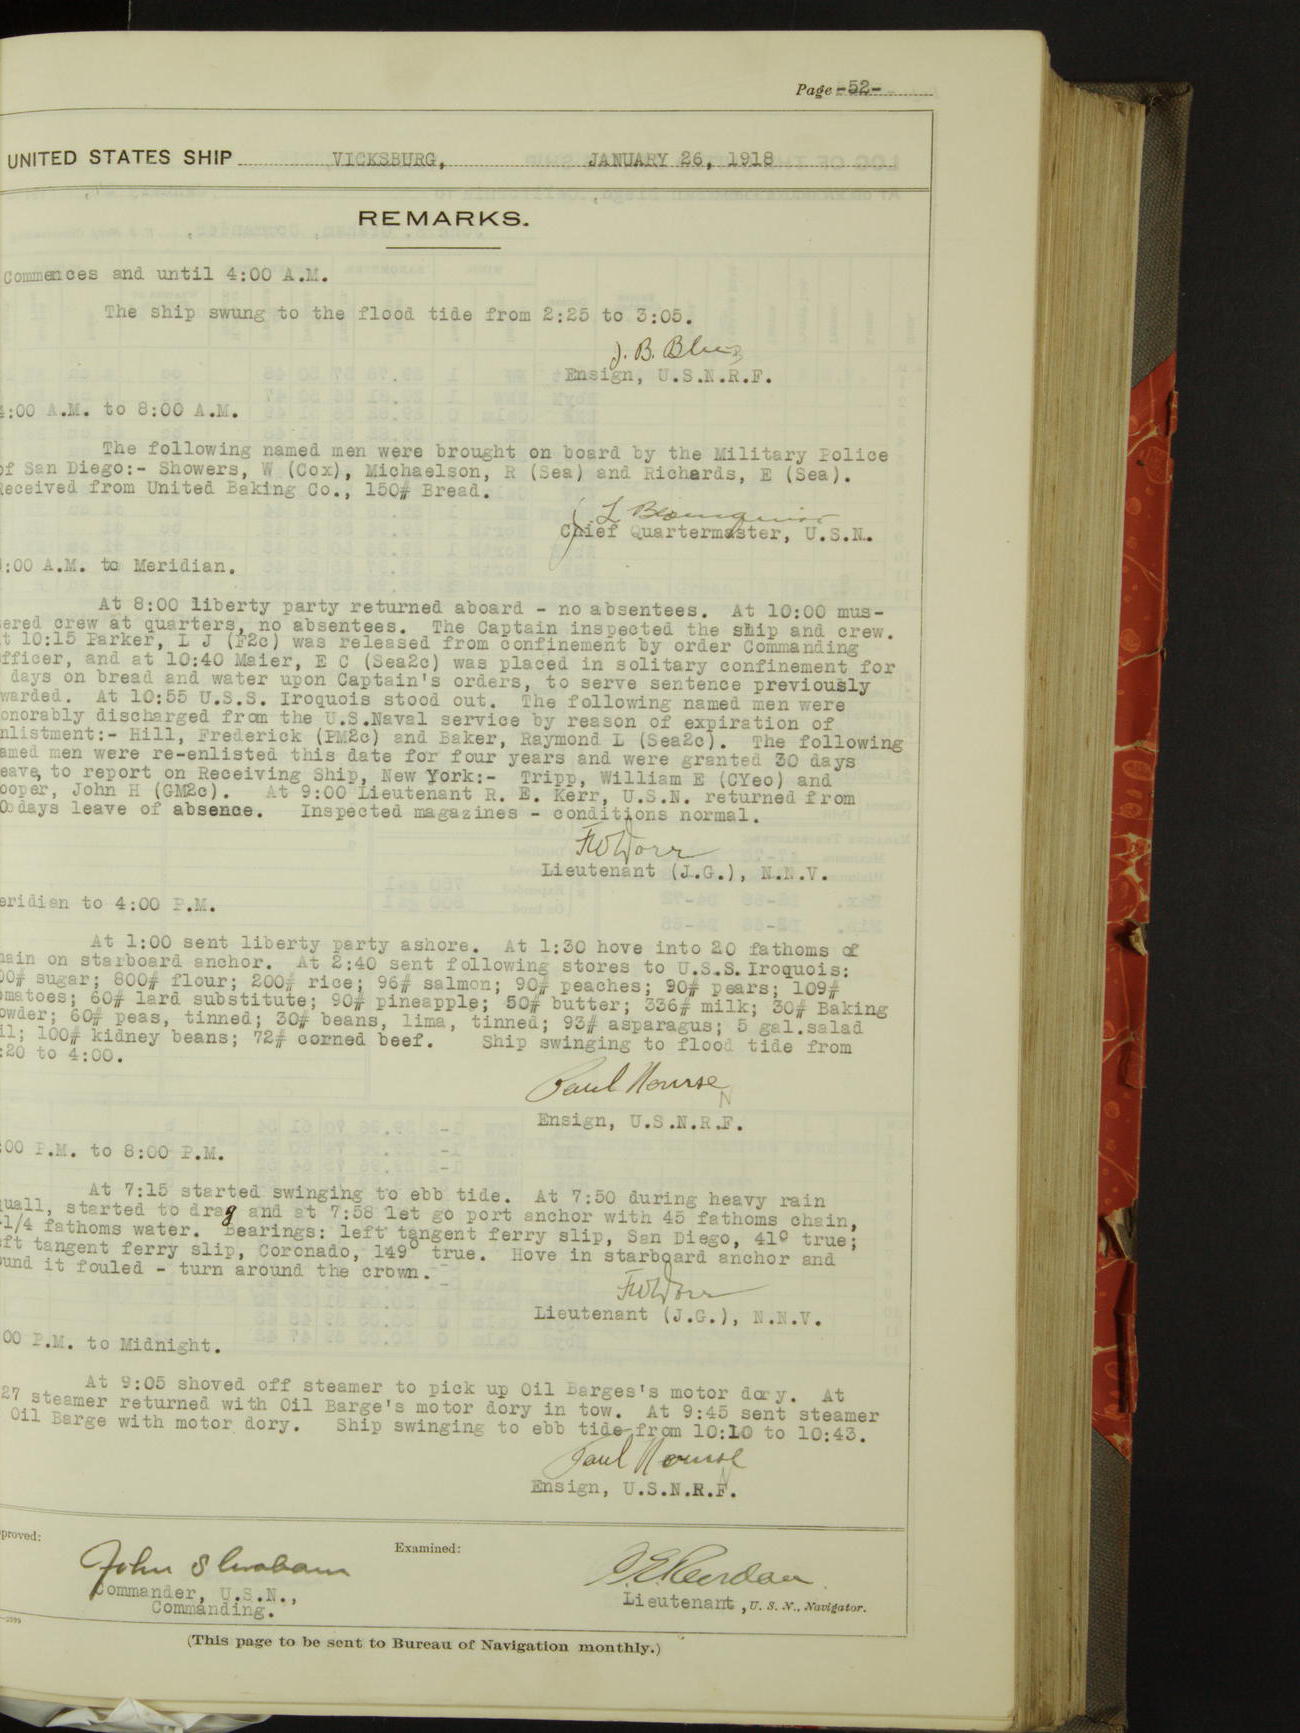 Page -52-
UNITED STATES SHIP VICKSBURG, JANUARY 26, 1918
REMARKS.
Commences and until 4:00 A.M.
The ship swung to the flood tide from 2:25 to 3:05.
J. B.
Ensign, U.S.N.R.F.
4:00 A.M. to 8:00 A.M.
The following named men were brought on board by the Military Police
of San Diego:- Showers, W (Cox), Michaelson, R (Sea) and Richards, E (Sea).
Received from United Baking Co., 150# Bread.
Chief Quartermaster, U.S.N.
:00 A.M. to Meridian.
At 8:00 liberty party returned aboard - no absentees. At 10:00 mus-
ered crew at quarters, no absentees. The Captain inspected the ship and crew.
t 10:15 Parker, L J (F2c) was released from confinement by order Commanding
fficer, and at 10:40 Maier, E C (Sea2c) was placed in solitary confinement for
days on bread and water upon Captain's orders, to serve sentence previously
warded. At 10:55 U.S.S. Iroquois stood out. The following named men were
onorably discharged from the U.S.Naval service by reason of expiration of
nlistment:- Hill, Frederick (PM2c) and Baker, Raymond L (Sea2c). The following
amed men were re-enlisted this date for four years and were granted 30 days
eave, to report on Receiving Ship, New York:- Tripp, William E (CYeo) and
ooper, John H (GM2c). At 9:00 Lieutenant R. E. Kerr, U.S.N. returned from
0 days leave of absence. Inspected magazines - conditions normal.
FW Dorr
Lieutenant (J.G.), N.N.V.
eridian to 4:00 P.M.
At 1:00 sent liberty party ashore. At 1:30 hove into 20 fathoms of
hain on starboard anchor. At 2:40 sent following stores to U.S.S. Iroquois:
00# sugar; 800# flour; 200# rice; 96# salmon; 90# peaches; 90# pears; 109#
omatoes; 60# lard substitute; 90# pineapple; 50# butter; 336# milk; 30# Baking
owder; 60# peas, tinned; 30# beans, lima, tinned; 93# asparagus; 5 gal.salad
il; 100# kidney beans; 72# corned beef. Ship swinging to flood tide from
:20 to 4:00.
Paul Nourse
N
Ensign, U.S.N.R.F.
:00 P.M. to 8:00 P.M.
At 7:15 started swinging to ebb tide. At 7:50 during heavy rain
quall, started to drag and at 7:58 let go port anchor with 45 fathoms chain,
-1/4 fathoms water. Bearings: left tangent ferry slip, San Diego, 41° true;
eft tangent ferry slip, Coronado, 149° true. Hove in starboard anchor and
ound it fouled - turn around the crown.
FW Dorr
Lieutenant (J.G.), N.N.V.
00 P.M. to Midnight.
At 9:05 shoved off steamer to pick up Oil Barges's motor dory. At
27 steamer returned with Oil Barge's motor dory in tow. At 9:45 sent steamer
Oil Barge with motor dory. Ship swinging to ebb tide from 10:10 to 10:43.
Paul Nourse
N
Ensign, U.S.N.R.F.
proved:
Examined:
John S Graham
Commander, U.S.N.,
Commanding.
Lieutenant, U. S. N., Navigator.
(This page to be sent to Bureau of Navigation monthly.)